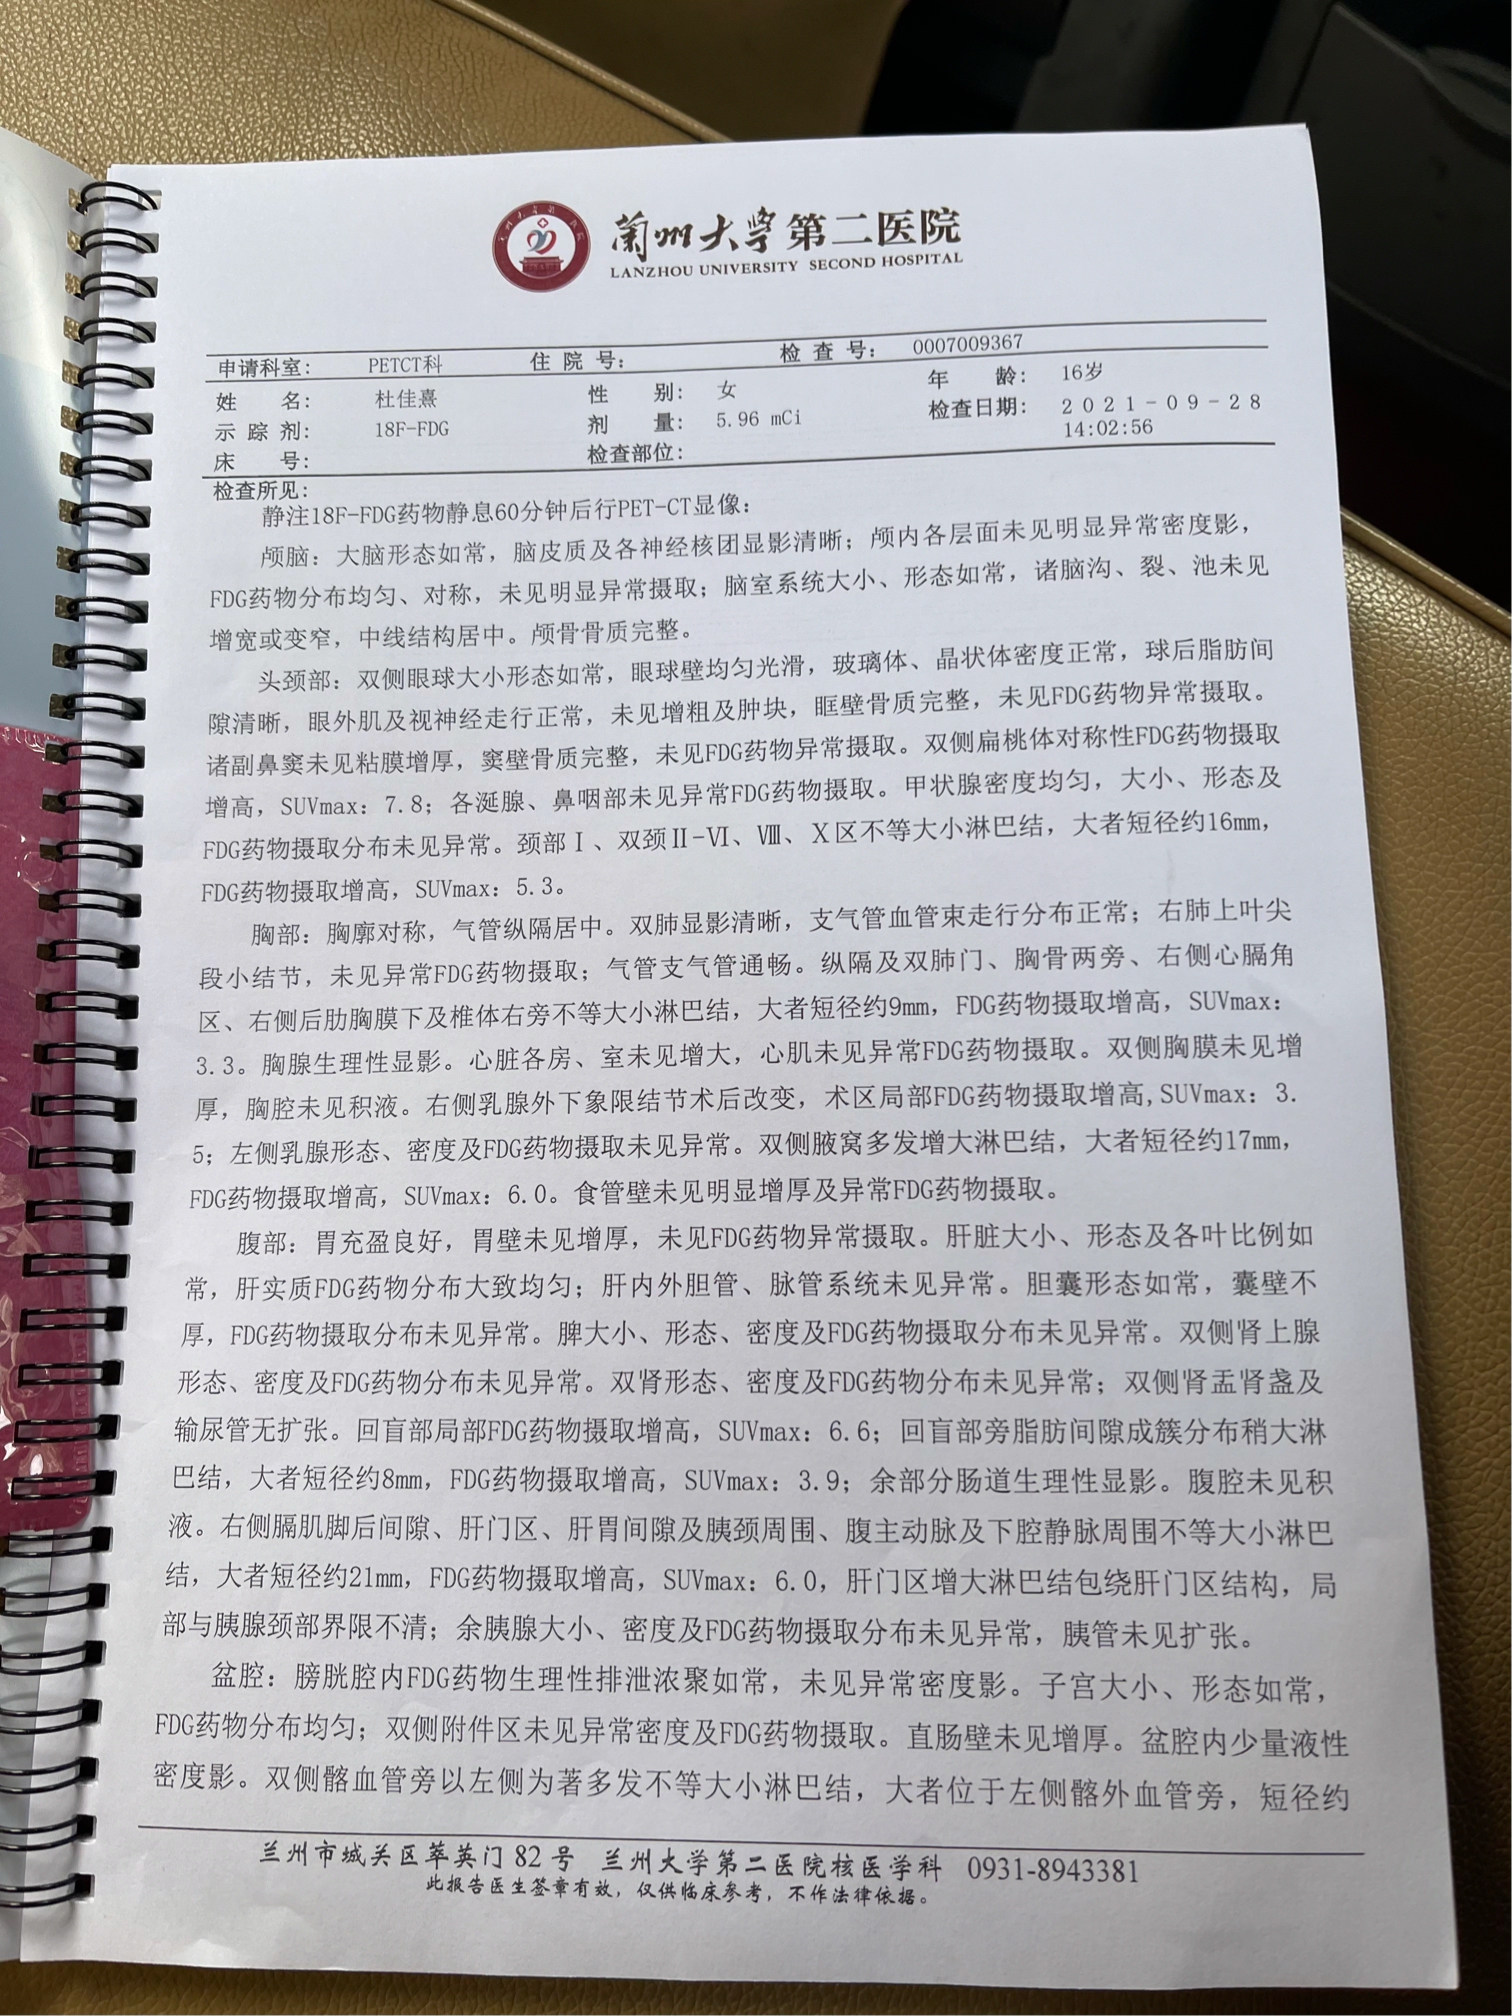 兰州大学第二医院
LANZHOU UNIVERSITY SECOND HOSPITAL
申请科室: PETCT科 住 院 号: 检 查 号: 0007009367
姓 名: 杜佳熹 性 别: 女 年 龄: 16岁
示 踪 剂: 18F-FDG 剂 量: 5.96 mCi 检查日期: 2021-09-28
14:02:56
床 号: 检查部位:
检查所见:
静注18F-FDG药物静息60分钟后行PET-CT显像:
颅脑: 大脑形态如常, 脑皮质及各神经核团显影清晰; 颅内各层面未见明显异常密度影,
FDG药物分布均匀、对称, 未见明显异常摄取; 脑室系统大小、形态如常, 诸脑沟、裂、池未见
增宽或变窄, 中线结构居中。颅骨骨质完整。
头颈部: 双侧眼球大小形态如常, 眼球壁均匀光滑, 玻璃体、晶状体密度正常, 球后脂肪间
隙清晰, 眼外肌及视神经走行正常, 未见增粗及肿块, 眶壁骨质完整, 未见FDG药物异常摄取。
诸副鼻窦未见粘膜增厚, 窦壁骨质完整, 未见FDG药物异常摄取。双侧扁桃体对称性FDG药物摄取
增高, SUVmax: 7.8; 各涎腺、鼻咽部未见异常FDG药物摄取。甲状腺密度均匀, 大小、形态及
FDG药物摄取分布未见异常。颈部Ⅰ、双颈Ⅱ-Ⅵ、Ⅷ、Ⅹ区不等大小淋巴结, 大者短径约16mm,
FDG药物摄取增高, SUVmax: 5.3。
胸部: 胸廓对称, 气管纵隔居中。双肺显影清晰, 支气管血管束走行分布正常; 右肺上叶尖
段小结节, 未见异常FDG药物摄取; 气管支气管通畅。纵隔及双肺门、胸骨两旁、右侧心膈角
区、右侧后肋胸膜下及椎体右旁不等大小淋巴结, 大者短径约9mm, FDG药物摄取增高, SUVmax:
3.3。胸腺生理性显影。心脏各房、室未见增大, 心肌未见异常FDG药物摄取。双侧胸膜未见增
厚, 胸腔未见积液。右侧乳腺外下象限结节术后改变, 术区局部FDG药物摄取增高, SUVmax: 3.
5; 左侧乳腺形态、密度及FDG药物摄取未见异常。双侧腋窝多发增大淋巴结, 大者短径约17mm,
FDG药物摄取增高, SUVmax: 6.0。食管壁未见明显增厚及异常FDG药物摄取。
腹部: 胃充盈良好, 胃壁未见增厚, 未见FDG药物异常摄取。肝脏大小、形态及各叶比例如
常, 肝实质FDG药物分布大致均匀; 肝内外胆管、脉管系统未见异常。胆囊形态如常, 囊壁不
厚, FDG药物摄取分布未见异常。脾大小、形态、密度及FDG药物摄取分布未见异常。双侧肾上腺
形态、密度及FDG药物分布未见异常。双肾形态、密度及FDG药物分布未见异常; 双侧肾盂肾盏及
输尿管无扩张。回盲部局部FDG药物摄取增高, SUVmax: 6.6; 回盲部旁脂肪间隙成簇分布稍大淋
巴结, 大者短径约8mm, FDG药物摄取增高, SUVmax: 3.9; 余部分肠道生理性显影。腹腔未见积
液。右侧膈肌脚后间隙、肝门区、肝胃间隙及胰颈周围、腹主动脉及下腔静脉周围不等大小淋巴
结, 大者短径约21mm, FDG药物摄取增高, SUVmax: 6.0, 肝门区增大淋巴结包绕肝门区结构, 局
部与胰腺颈部界限不清; 余胰腺大小、密度及FDG药物摄取分布未见异常, 胰管未见扩张。
盆腔: 膀胱腔内FDG药物生理性排泄浓聚如常, 未见异常密度影。子宫大小、形态如常,
FDG药物分布均匀; 双侧附件区未见异常密度及FDG药物摄取。直肠壁未见增厚。盆腔内少量液性
密度影。双侧髂血管旁以左侧为著多发不等大小淋巴结, 大者位于左侧髂外血管旁, 短径约
兰州市城关区萃英门 82 号 兰州大学第二医院核医学科 0931-8943381
此报告医生签章有效, 仅供临床参考, 不作法律依据。